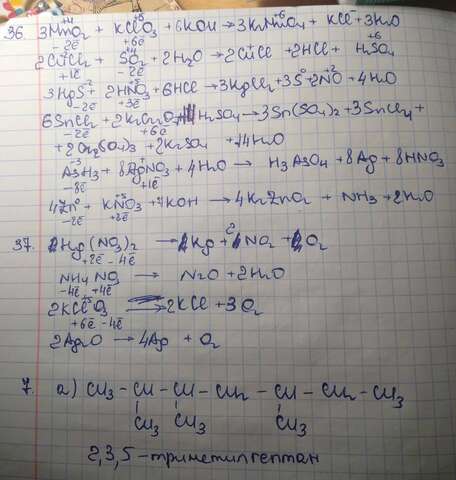 36. 3MnO₂ + KClO₃ + 6KOH → 3K₂MnO₄ + KCl + 3H₂O
-2ē +6ē
2CuCl₂ + SO₂ + 2H₂O → 2CuCl + 2HCl + H₂SO₄
+1ē -2ē
3HgS + 2HNO₃ + 6HCl → 3HgCl₂ + 3S + 2NO + 4H₂O
-2ē +3ē
6SnCl₂ + 2K₂CrO₄ + H₂SO₄ → 3Sn(SO₄)₂ + 3SnCl₄ +
-2ē +6ē
+ 2Cr₂(SO₄)₃ + 2K₂SO₄ + 14H₂O
AsH₃ + 8AgNO₃ + 4H₂O → H₃AsO₄ + 8Ag + 8HNO₃
-8ē +1ē
4Zn + KNO₃ + 7KOH → 4K₂ZnO₂ + NH₃ + 2H₂O
-2ē +8ē
37. Hg(NO₃)₂ → Hg + NO₂ + O₂
+2ē -4ē
NH₄NO₃ → N₂O + 2H₂O
-4ē +4ē
2KClO₃ → 2KCl + 3O₂
+6ē -4ē
2Ag₂O → 4Ag + O₂
7. а) CH₃ – CH – CH – CH₂ – CH – CH₂ – CH₃
CH₃ CH₃ CH₃
2,3,5-триметилгептан